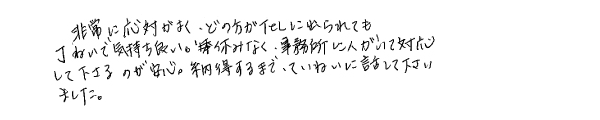 非常に応対がよく、どの方がTELに出られても
丁ねいで気持ち良い。昼休みなく、事務所に人がいて対応
して下さるのが安心。納得するまで、ていねいに話して下さい
ました。